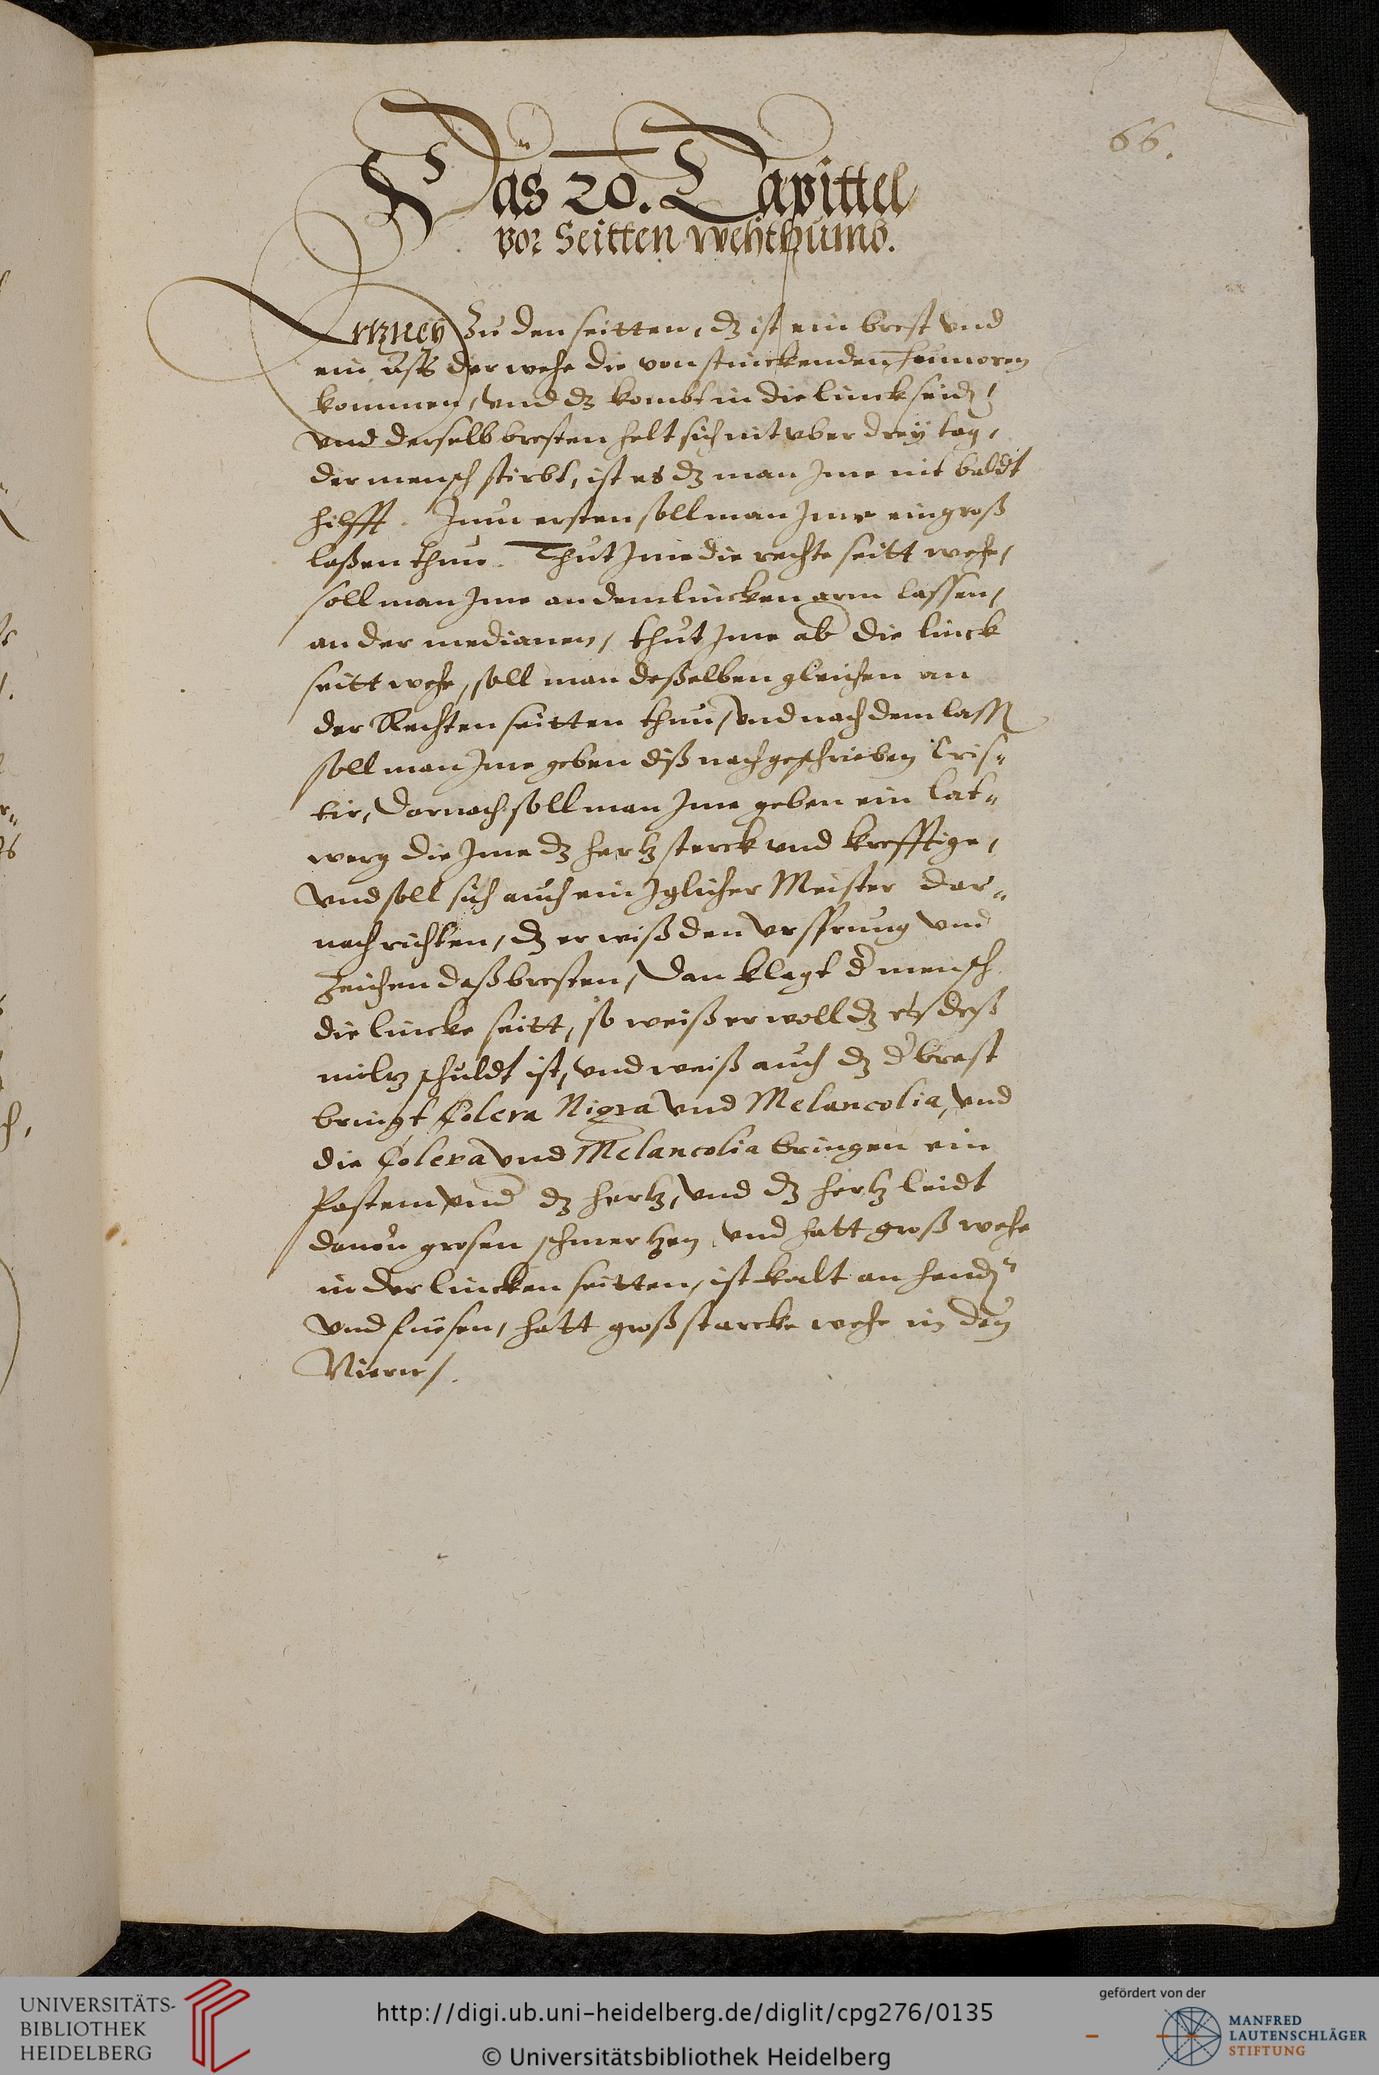 66.
Das 20. Capittel
vor Seitten wehthumb.
Artzney Zu den seitten, dz ist ein brest vnd
ein der wehe die von stinckenden humoren
kommen, vnd dz kombt in die linck seidt,
vnd derselb bresten helt sich nit vber drey tag,
der mensch stirbt, ist es dz man Jme nit baldt
hilfft. Zum ersten soll man Jme ein groß
laßen thun. Thut Jme die rechte seitt wehe,
soll man Jme an dem lincken arm lassen,
an der medianen, thut Jme ab die linck
seitt wehe, soll man deßelben gleichen an
der Rechten seitten thun, vnd nach dem lassen
soll man Jme geben diß nachgeschrieben Cris-
tir, Darnach soll man Jme geben ein lat-
werg die Jme dz hertz sterck vnd krefftige,
vnd soll sich auch ein Jglicher Meister dar-
nach richten, dz er wiß den vrsprung vnd
Zeichen daß bresten, Dan klagt d mensch
die lincke seitt, so weiß er woll dz deß
miltz schuldt ist, vnd weiß auch dz d brest
bringt Colera Nigra vnd Melancolia, vnd
die Colera vnd Melancolia bringen ein
Postem vmb dz hertz, vnd dz hertz leidt
dauon grosen schmertzen, vnd hatt groß wehe
in der lincken seitten, ist kalt an hendn
vnd fuesen, hatt groß starcke wehe in den
Niern.
UNIVERSITÄTS-
BIBLIOTHEK
HEIDELBERG
http://digi.ub.uni-heidelberg.de/diglit/cpg276/0135
© Universitätsbibliothek Heidelberg
gefördert von der
MANFRED
LAUTENSCHLÄGER
STIFTUNG